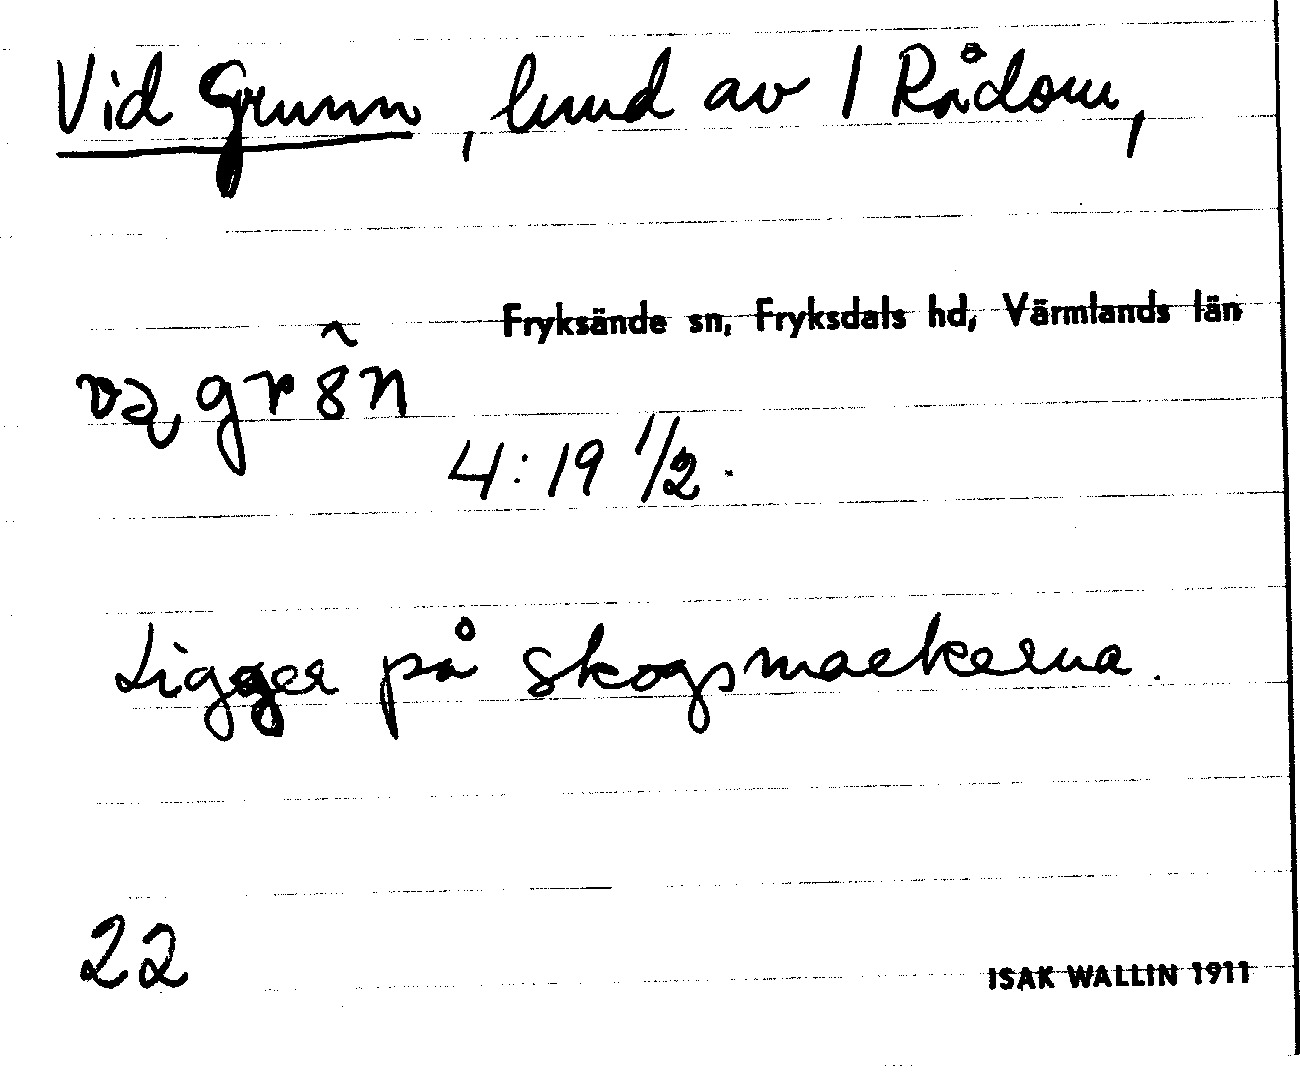 Vid Grunn, lund av 1 Rådom,
Fryksände sn, Fryksdals hd, Värmlands län
4:19 1/2.
Ligger på skogsmarkerna.
22
ISAK WALLIN 1911